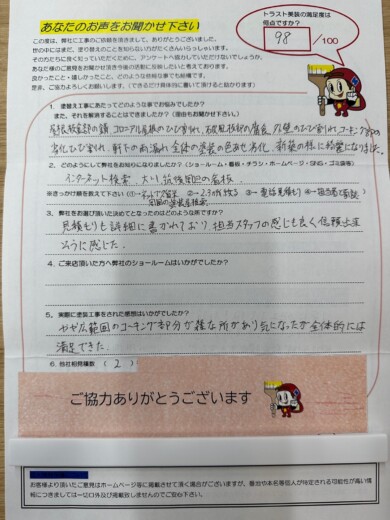 あなたのお声をお聞かせ下さい
トラスト美装の満足度は
何点ですか？
98 /100
この度は、弊社に工事のご依頼を頂きまして、ありがとうございました。
世の中にはまだ、塗り替えのことを知らない方がたくさんいらっしゃいます。
そのためにも、アンケートへ協力していただけないでしょうか。
あなた様のご意見をお聞かせ頂き今後の活動に反映したいと考えております。
良かったこと・嬉しかったこと、どのような些細な事でも結構です。
是非、ご協力よろしくお願いします。（できるだけ具体的に書いて頂けると助かります）
1. 塗替え工事にあたってどのような事でお悩みでしたか？
また、それを解消することはできましたか？（理由もお聞かせ下さい）
屋根板金部の錆 コロニアル屋根のひび割れ、破風板の腐食 外壁のひび割れ コーキング部の
劣化ひび割れ、軒下の雨漏れ 全体の塗装の色あせ劣化 新築の様に綺麗になりました。
2. どのようにして弊社をお知りになりましたか？（ショールーム・看板・チラシ・ホームページ・SNS・ゴミ袋等）
インターネット検索、
※きっかけ順を教えて下さい
3. 弊社をお選び頂いた決めてとなったのはどのような所ですか？
見積もりも詳細に書かれており 担当スタッフの感じも良く信頼出来
そうに感じた。
4. ご来店頂いた方へ弊社のショールームはいかがでしたか？
5. 実際に塗装工事をされた感想はいかがでしたか？
やや広範囲のコーキング部分が雑な所があり気になったが全体的には
満足できた。
6. 他社相見積数 （ 2 ）
ご協力ありがとうございます
お客様より頂いたご意見はホームページ等に掲載させて頂く場合がございますが、番地や本名等個人が特定される可能性が高い情
報につきましては一切口外及び掲載致しませんのでご安心下さい。